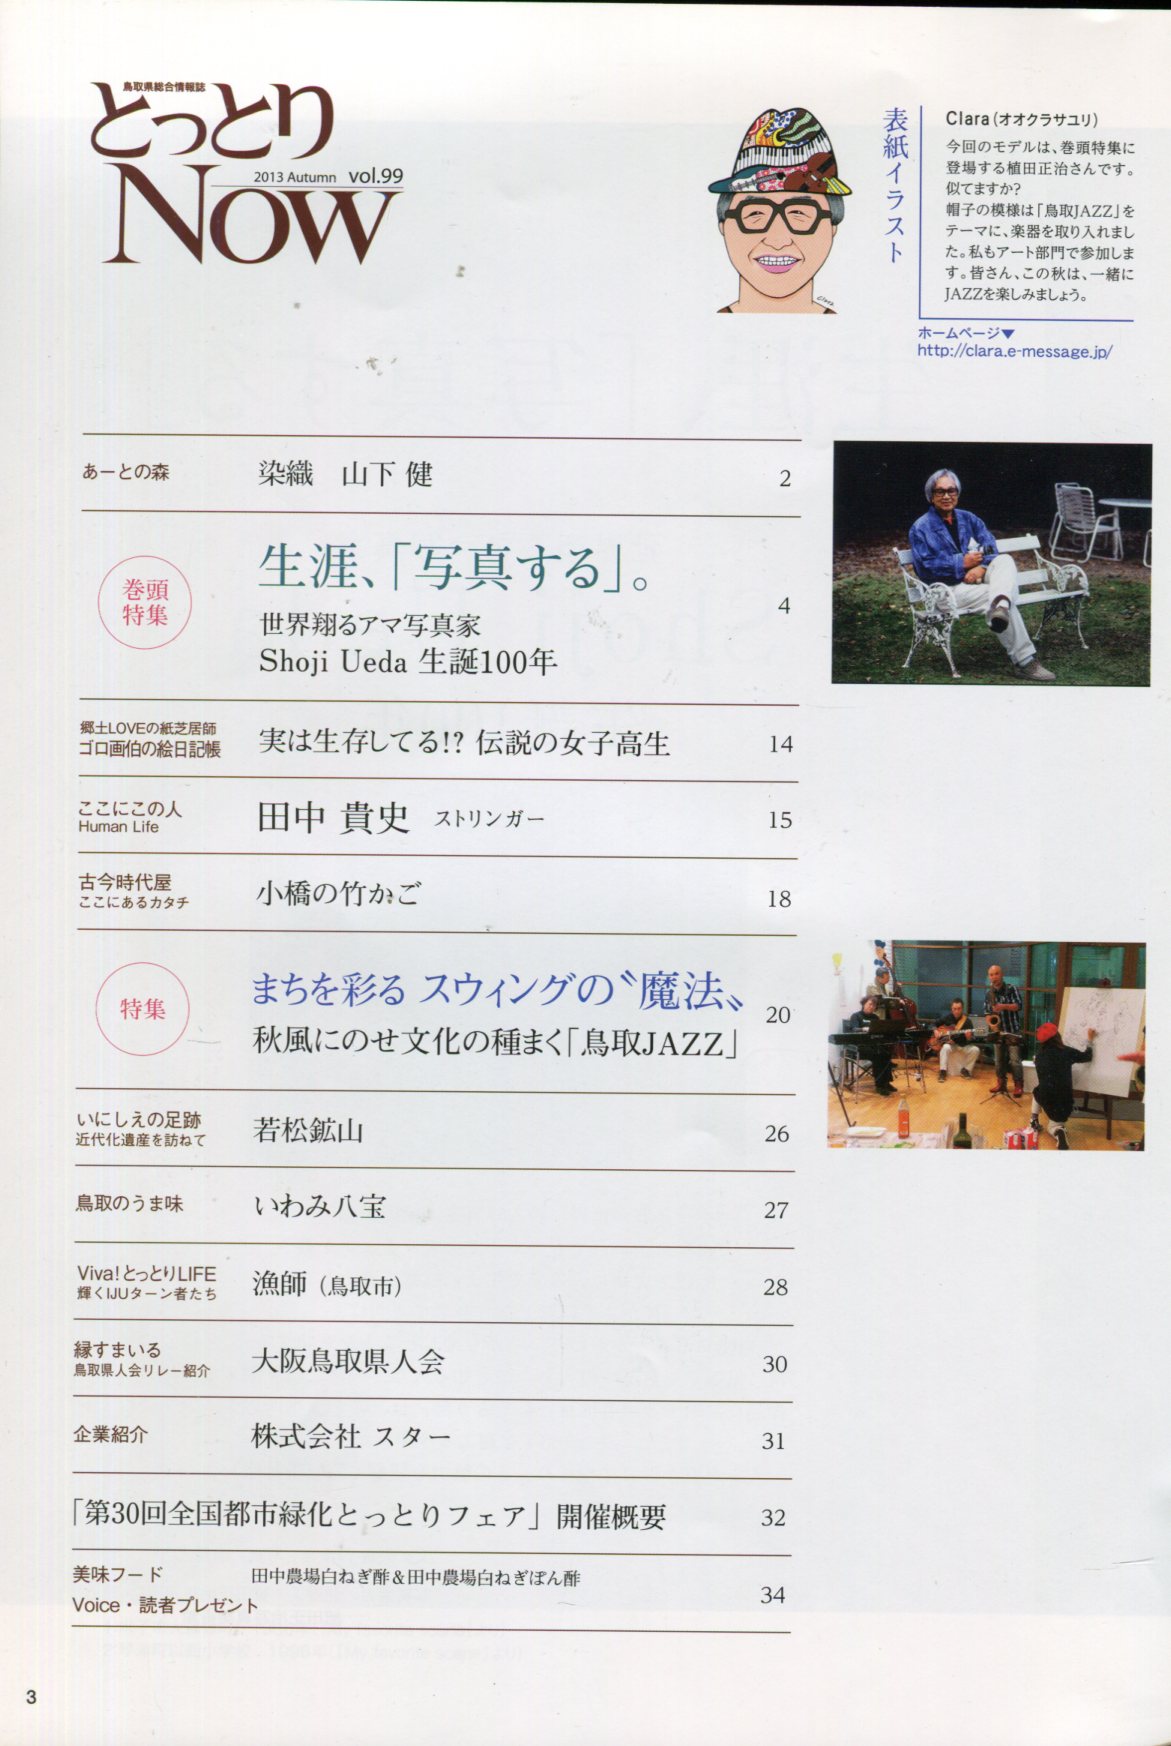 鳥取県総合情報誌
とっとり
NOW
2013 Autumn vol.99
表紙イラスト
Clara(オオクラサユリ)
今回のモデルは、巻頭特集に
登場する植田正治さんです。
似てますか?
帽子の模様は「鳥取JAZZ」を
テーマに、楽器を取り入れまし
た。私もアート部門で参加しま
す。皆さん、この秋は、一緒に
JAZZを楽しみましょう。
ホームページ▼
http://clara.e-message.jp/
Clara
あーとの森 染織 山下 健 2
巻頭
特集
生涯、「写真する」。
世界翔るアマ写真家
Shoji Ueda 生誕100年
4
郷土LOVEの紙芝居師
ゴロ画伯の絵日記帳
実は生存してる!? 伝説の女子高生 14
ここにこの人
Human Life
田中 貴史 ストリンガー 15
古今時代屋
ここにあるカタチ
小橋の竹かご 18
特集
まちを彩る スウィングの〝魔法〟
秋風にのせ文化の種まく「鳥取JAZZ」
20
いにしえの足跡
近代化遺産を訪ねて
若松鉱山 26
鳥取のうま味 いわみ八宝 27
Viva!とっとりLIFE
輝くIJUターン者たち
漁師(鳥取市) 28
縁すまいる
鳥取県人会リレー紹介
大阪鳥取県人会 30
企業紹介 株式会社 スター 31
「第30回全国都市緑化とっとりフェア」開催概要 32
美味フード 田中農場白ねぎ酢&田中農場白ねぎぽん酢
Voice・読者プレゼント
34
3